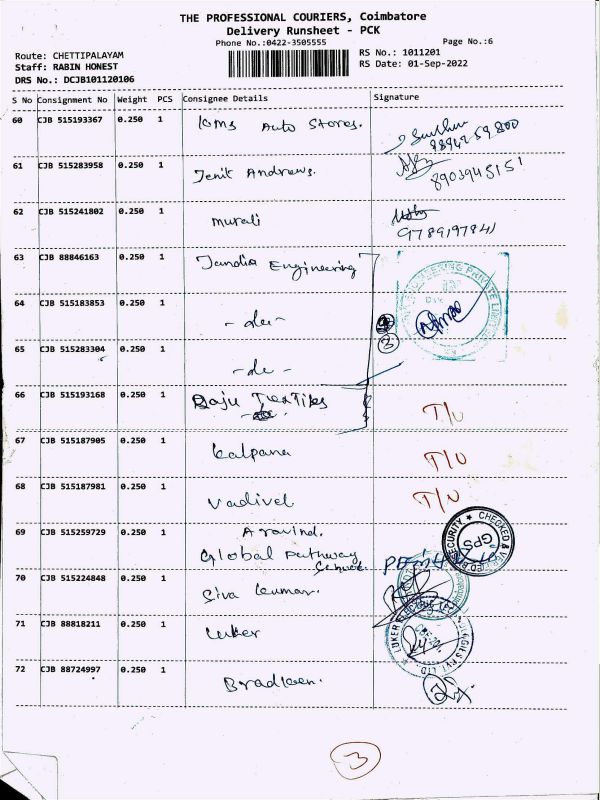 THE PROFESSIONAL COURIERS, Coimbatore
Delivery Runsheet - PCK
Phone No.:0422-3505555 Page No.:6
Route: CHETTIPALAYAM RS No.: 1011201
Staff: RABIN HONEST RS Date: 01-Sep-2022
DRS No.: DCJB101120106
S No Consignment No Weight PCS Consignee Details Signature
60 CJB 515193367 0.250 1 Auto Stores.
98942 59800
61 CJB 515283958 0.250 1 Jenit Andrews.
8903945151
62 CJB 515241802 0.250 1 Murali
9789197841
63 CJB 88846163 0.250 1 Engineering
64 CJB 515183853 0.250 1 -do-
65 CJB 515283304 0.250 1 -do- 3
66 CJB 515193168 0.250 1 Raju Textiles T/U
67 CJB 515187905 0.250 1 Kalpana T/U
68 CJB 515187981 0.250 1 Vadivel T/U
69 CJB 515259729 0.250 1 Aravind.
Global Pathway
School
CHECKED & SECURITY GPS
70 CJB 515224848 0.250 1 Siva Kumar.
71 CJB 88818211 0.250 1 Luker
LUKER PVT. LTD.
72 CJB 88724997 0.250 1
3